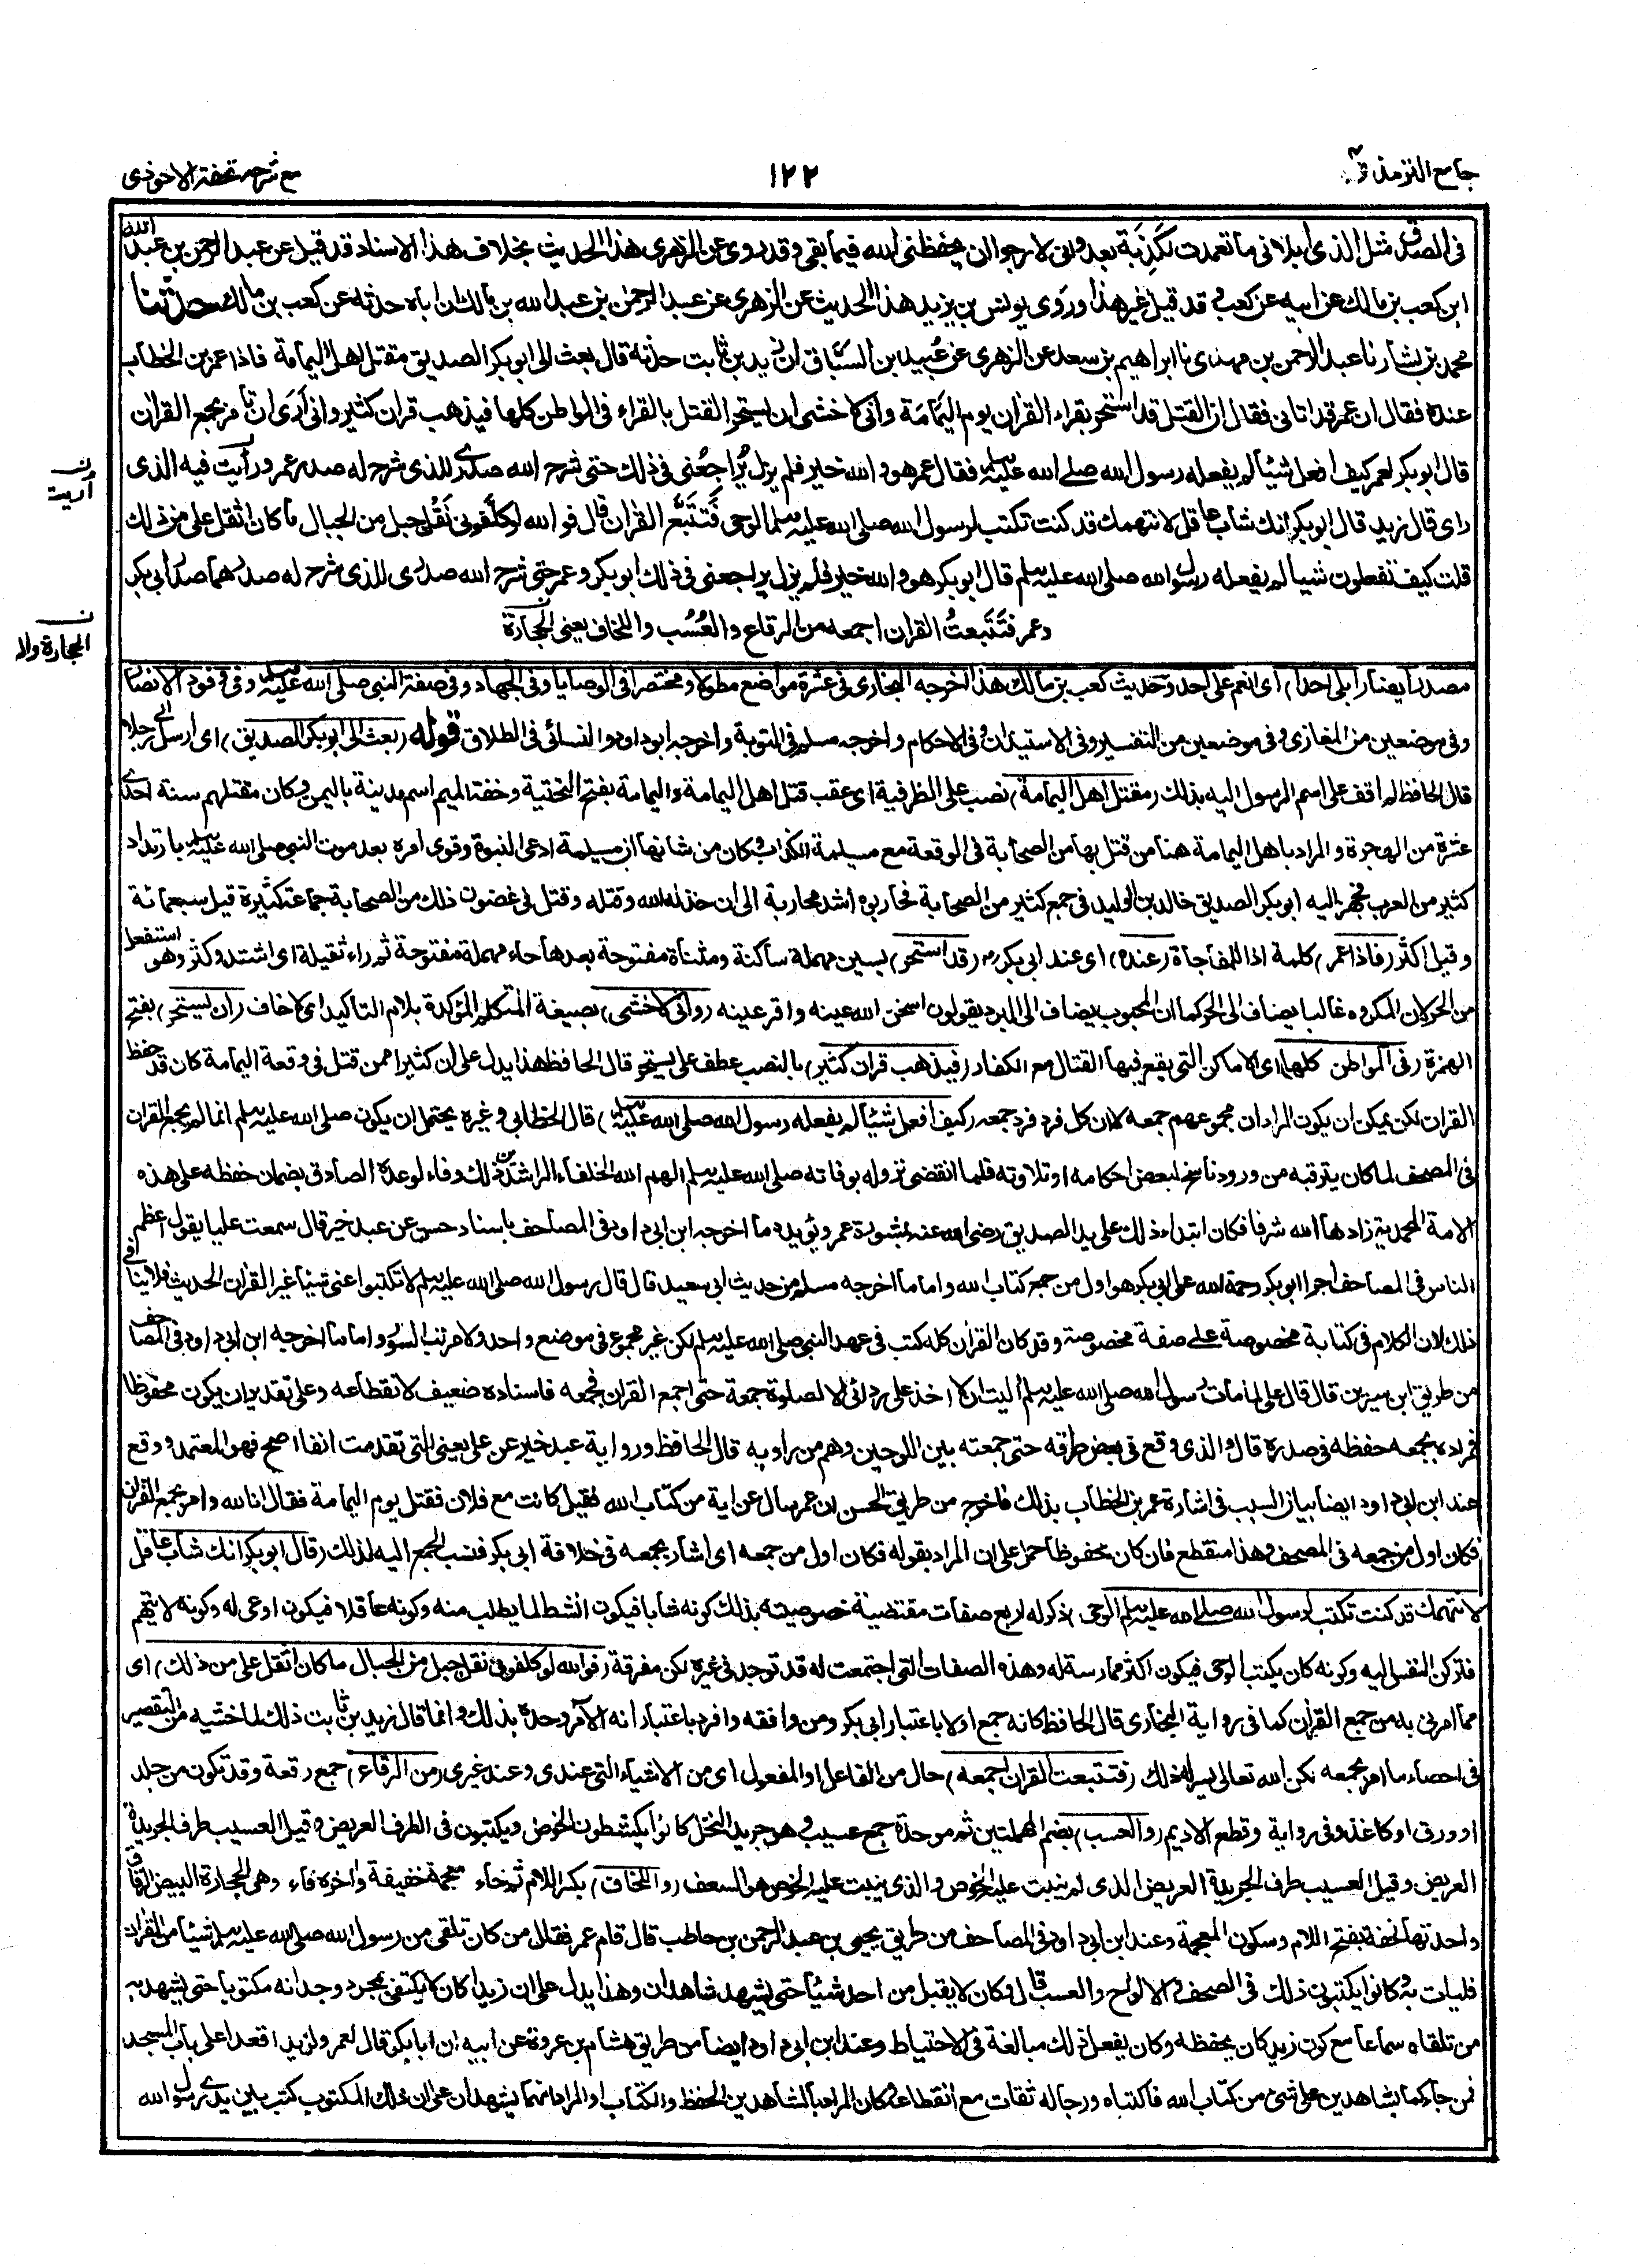 جامع الترمذي
١٢٢
مع شرحه تحفة الاحوذي
في الصدق مثل الذي ابلاني ما تعمدت لكذبة بعد واني لارجو ان يحفظني الله فيما بقي وقد روى عن الزهري هذا الحديث بخلاف هذا الاسناد قد قيل عن عبد الرحمن بن عبد الله
ابن كعب بن مالك عن ابيه عن كعب وقد قيل غير هذا وروى يونس بن يزيد هذا الحديث عن الزهري عن عبد الرحمن بن عبد الله بن مالك ان اباه حدثه عن كعب بن مالك حدثنا
محمد بن بشار نا عبد الرحمن بن مهدي نا ابراهيم بن سعد عن الزهري عن عبيد بن السباق ان زيد بن ثابت حدثه قال بعث الى ابو بكر الصديق مقتل اهل اليمامة فاذا عمر بن الخطاب
عنده فقال ان عمر قد اتاني فقال ان القتل قد استحر بقراء القران يوم اليمامة واني لاخشى ان يستحر القتل بالقراء في المواطن كلها فيذهب قران كثير واني ارى ان تامر بجمع القران
قال ابو بكر لعمر كيف افعل شيئا لم يفعله رسول الله صلى الله عليه وسلم فقال عمر هو والله خير فلم يزل يراجعني في ذلك حتى شرح الله صدري للذي شرح له صدر عمر ورأيت فيه الذي
رأى قال زيد قال ابو بكر انك شاب عاقل لا نتهمك قد كنت تكتب لرسول الله صلى الله عليه وسلم الوحي فتتبع القران قال فوالله لو كلفوني نقل جبل من الجبال ما كان اثقل علي من ذلك
قلت كيف تفعلون شيئا لم يفعله رسول الله صلى الله عليه وسلم قال ابو بكر هو والله خير فلم يزل يراجعني في ذلك ابو بكر وعمر حتى شرح الله صدري للذي شرح له صدرهما صدر ابي بكر
وعمر فتتبعت القران اجمعه من الرقاع والعسب واللخاف يعني الحجارة
ن
أريت
ن
الحجارة والا
مصدر أيضا (ابلى احدا) اي انعم على احد وحديث كعب بن مالك هذا اخرجه البخاري في عشرة مواضع مطولا ومختصرا في الوصايا وفي الجهاد وفي صفة النبي صلى الله عليه وسلم وفي وفود الانصار
وفي موضعين من المغازي وفي موضعين من التفسير وفي الاستيذان وفي الاحكام واخرجه مسلم في التوبة واخرجه ابو داود والنسائي في الطلاق قوله (بعث الى ابو بكر الصديق) اي ارسل الى رجلا
قال الحافظ لم اقف على اسم الرسول اليه بذلك (مقتل اهل اليمامة) نصب على الظرفية اي عقب قتل اهل اليمامة واليمامة بفتح التحتية وخفة الميم اسم مدينة باليمن وكان مقتلهم سنة احدى
عشرة من الهجرة والمراد باهل اليمامة هنا من قتل بها من الصحابة في الوقعة مع مسيلمة الكذاب وكان من شانها ان مسيلمة ادعى النبوة وقوى امره بعد موت النبي صلى الله عليه وسلم بارتداد
كثير من العرب فجهز اليه ابو بكر الصديق خالد بن الوليد في جمع كثير من الصحابة فحاربوه اشد محاربة الى ان خذله الله وقتله وقتل في غضون ذلك من الصحابة جماعة كثيرة قيل سبعمائة
وقيل اكثر (فاذا عمر) كلمة اذا للمفاجأة (عنده) اي عند ابي بكر (قد استحر) بسين مهملة ساكنة ومثناة مفتوحة بعدها حاء مهملة مفتوحة ثم راء ثقيلة اي اشتد وكثر وهو استفعل
من الحر لان المكروه غالبا يضاف الى الحر كما ان المحبوب يضاف الى البرد يقولون اسخن الله عينه واقر عينه (واني لاخشى) بصيغة المتكلم المؤكدة بلام التاكيد اي لاخاف (ان يستحر) بفتح
الهمزة (في المواطن كلها) اي الاماكن التي يقع فيها القتال مع الكفار (فيذهب قران كثير) بالنصب عطف على يستحر قال الحافظ هذا يدل على ان كثيرا ممن قتل في وقعة اليمامة كان قد حفظ
القران لكن يمكن ان يكون المراد ان مجموعهم جمعه لا ان كل فرد فرد جمعه (كيف افعل شيئا لم يفعله رسول الله صلى الله عليه وسلم) قال الخطابي وغيره يحتمل ان يكون صلى الله عليه وسلم انما لم يجمع القران
في المصحف لما كان يترقبه من ورود ناسخ لبعض احكامه او تلاوته فلما انقضى نزوله بوفاته صلى الله عليه وسلم الهم الله الخلفاء الراشدين ذلك وفاء لوعده الصادق بضمان حفظه على هذه
الامة المحمدية زادها الله شرفا فكان ابتداء ذلك على يد الصديق رضي الله عنه بمشورة عمر ويؤيده ما اخرجه ابن ابي داود في المصاحف باسناد حسن عن عبد خير قال سمعت عليا يقول اعظم
الناس في المصاحف اجرا ابو بكر رحمة الله على ابي بكر هو اول من جمع كتاب الله واما ما اخرجه مسلم من حديث ابي سعيد قال قال رسول الله صلى الله عليه وسلم لا تكتبوا عني شيئا غير القران الحديث فلا ينافي
ذلك لان الكلام في كتابة مخصوصة على صفة مخصوصة وقد كان القران كله كتب في عهد النبي صلى الله عليه وسلم لكن غير مجموع في موضع واحد ولا مرتب السور واما ما اخرجه ابن ابي داود في المصاحف
من طريق ابن سيرين قال قال علي لما مات رسول الله صلى الله عليه وسلم اليت ان لا اخذ على ردائي الا لصلوة جمعة حتى اجمع القران فجمعه فاسناده ضعيف لانقطاعه وعلى تقدير ان يكون محفوظا
فمراده بجمعه حفظه في صدره قال والذي وقع في بعض طرقه حتى جمعته بين اللوحين وهم من راويه قال الحافظ ورواية عبد خير عن علي يعني التي تقدمت انفا اصح فهو المعتمد ووقع
عند ابن ابي داود ايضا بيان السبب في اشارة عمر بن الخطاب بذلك فاخرج من طريق الحسن ان عمر سال عن اية من كتاب الله فقيل كانت مع فلان فقتل يوم اليمامة فقال انا لله وامر بجمع القران
فكان اول من جمعه في المصحف وهذا منقطع فان كان محفوظا حمل على ان المراد بقوله فكان اول من جمعه اي اشار بجمعه في خلافة ابي بكر فنسب الجمع اليه لذلك (قال ابو بكر انك شاب عاقل
لا نتهمك قد كنت تكتب لرسول الله صلى الله عليه وسلم الوحي) ذكر له اربع صفات مقتضية خصوصيته بذلك كونه شابا فيكون انشط لما يطلب منه وكونه عاقلا فيكون اوعى له وكونه لا يتهم
فتركن النفس اليه وكونه كان يكتب الوحي فيكون اكثر ممارسة له وهذه الصفات التي اجتمعت له قد توجد في غيره لكن مفرقة (فوالله لو كلفوني نقل جبل من الجبال ما كان اثقل علي من ذلك) اي
مما امرني به من جمع القران كما في رواية البخاري قال الحافظ كانه جمع اولا باعتبار ابي بكر ومن وافقه وافرد باعتبار انه الآمر وحده بذلك وانما قال زيد بن ثابت ذلك لما خشيه من التقصير
في احصاء ما امر بجمعه لكن الله تعالى يسر له ذلك (فتتبعت القران اجمعه) حال من الفاعل او المفعول اي من الاشياء التي عندي وعند غيري (من الرقاع) جمع رقعة وقد تكون من جلد
او ورق او كاغذ وفي رواية وقطع الاديم (والعسب) بضم المهملتين ثم موحدة جمع عسيب وهو جريد النخل كانوا يكشطون الخوص ويكتبون في الطرف العريض وقيل العسيب طرف الجريدة
العريض وقيل العسيب طرف الجريدة العريض الذي لم ينبت عليه الخوص والذي ينبت عليه الخوص هو السعف (واللخاف) بكسر اللام ثم خاء معجمة خفيفة واخره فاء وهي الحجارة البيض الرقاق
واحدتها لخفة بفتح اللام وسكون المعجمة وعند ابن ابي داود في المصاحف من طريق يحيى بن عبد الرحمن بن حاطب قال قام عمر فقال من كان تلقى من رسول الله صلى الله عليه وسلم شيئا من القران
فليات به وكانوا يكتبون ذلك في الصحف والالواح والعسب قال وكان لا يقبل من احد شيئا حتى يشهد شاهدان وهذا يدل على ان زيدا كان لا يكتفي بمجرد وجدانه مكتوبا حتى يشهد به
من تلقاه سماعا مع كون زيد كان يحفظه وكان يفعل ذلك مبالغة في الاحتياط وعند ابن ابي داود ايضا من طريق هشام بن عروة عن ابيه ان ابا بكر قال لعمر ولزيد اقعدا على باب المسجد
فمن جاءكما بشاهدين على شيء من كتاب الله فاكتباه ورجاله ثقات مع انقطاعه وكان المراد بالشاهدين الحفظ والكتاب او المراد انهما يشهدان على ان ذلك المكتوب كتب بين يدي رسول الله